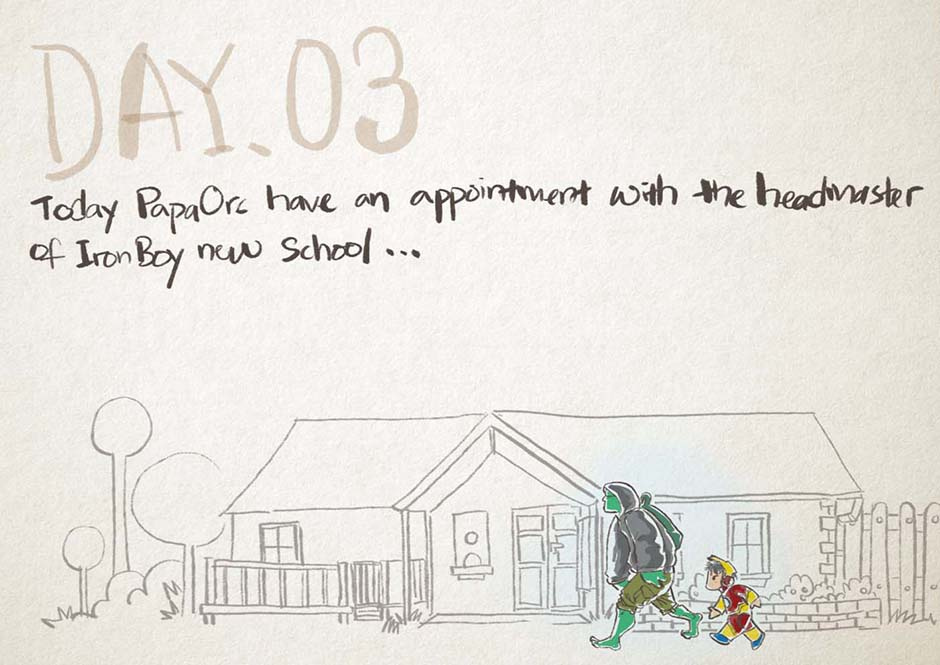 DAY.03
Today PapaOrc have an appointment with the headmaster
of IronBoy new school...